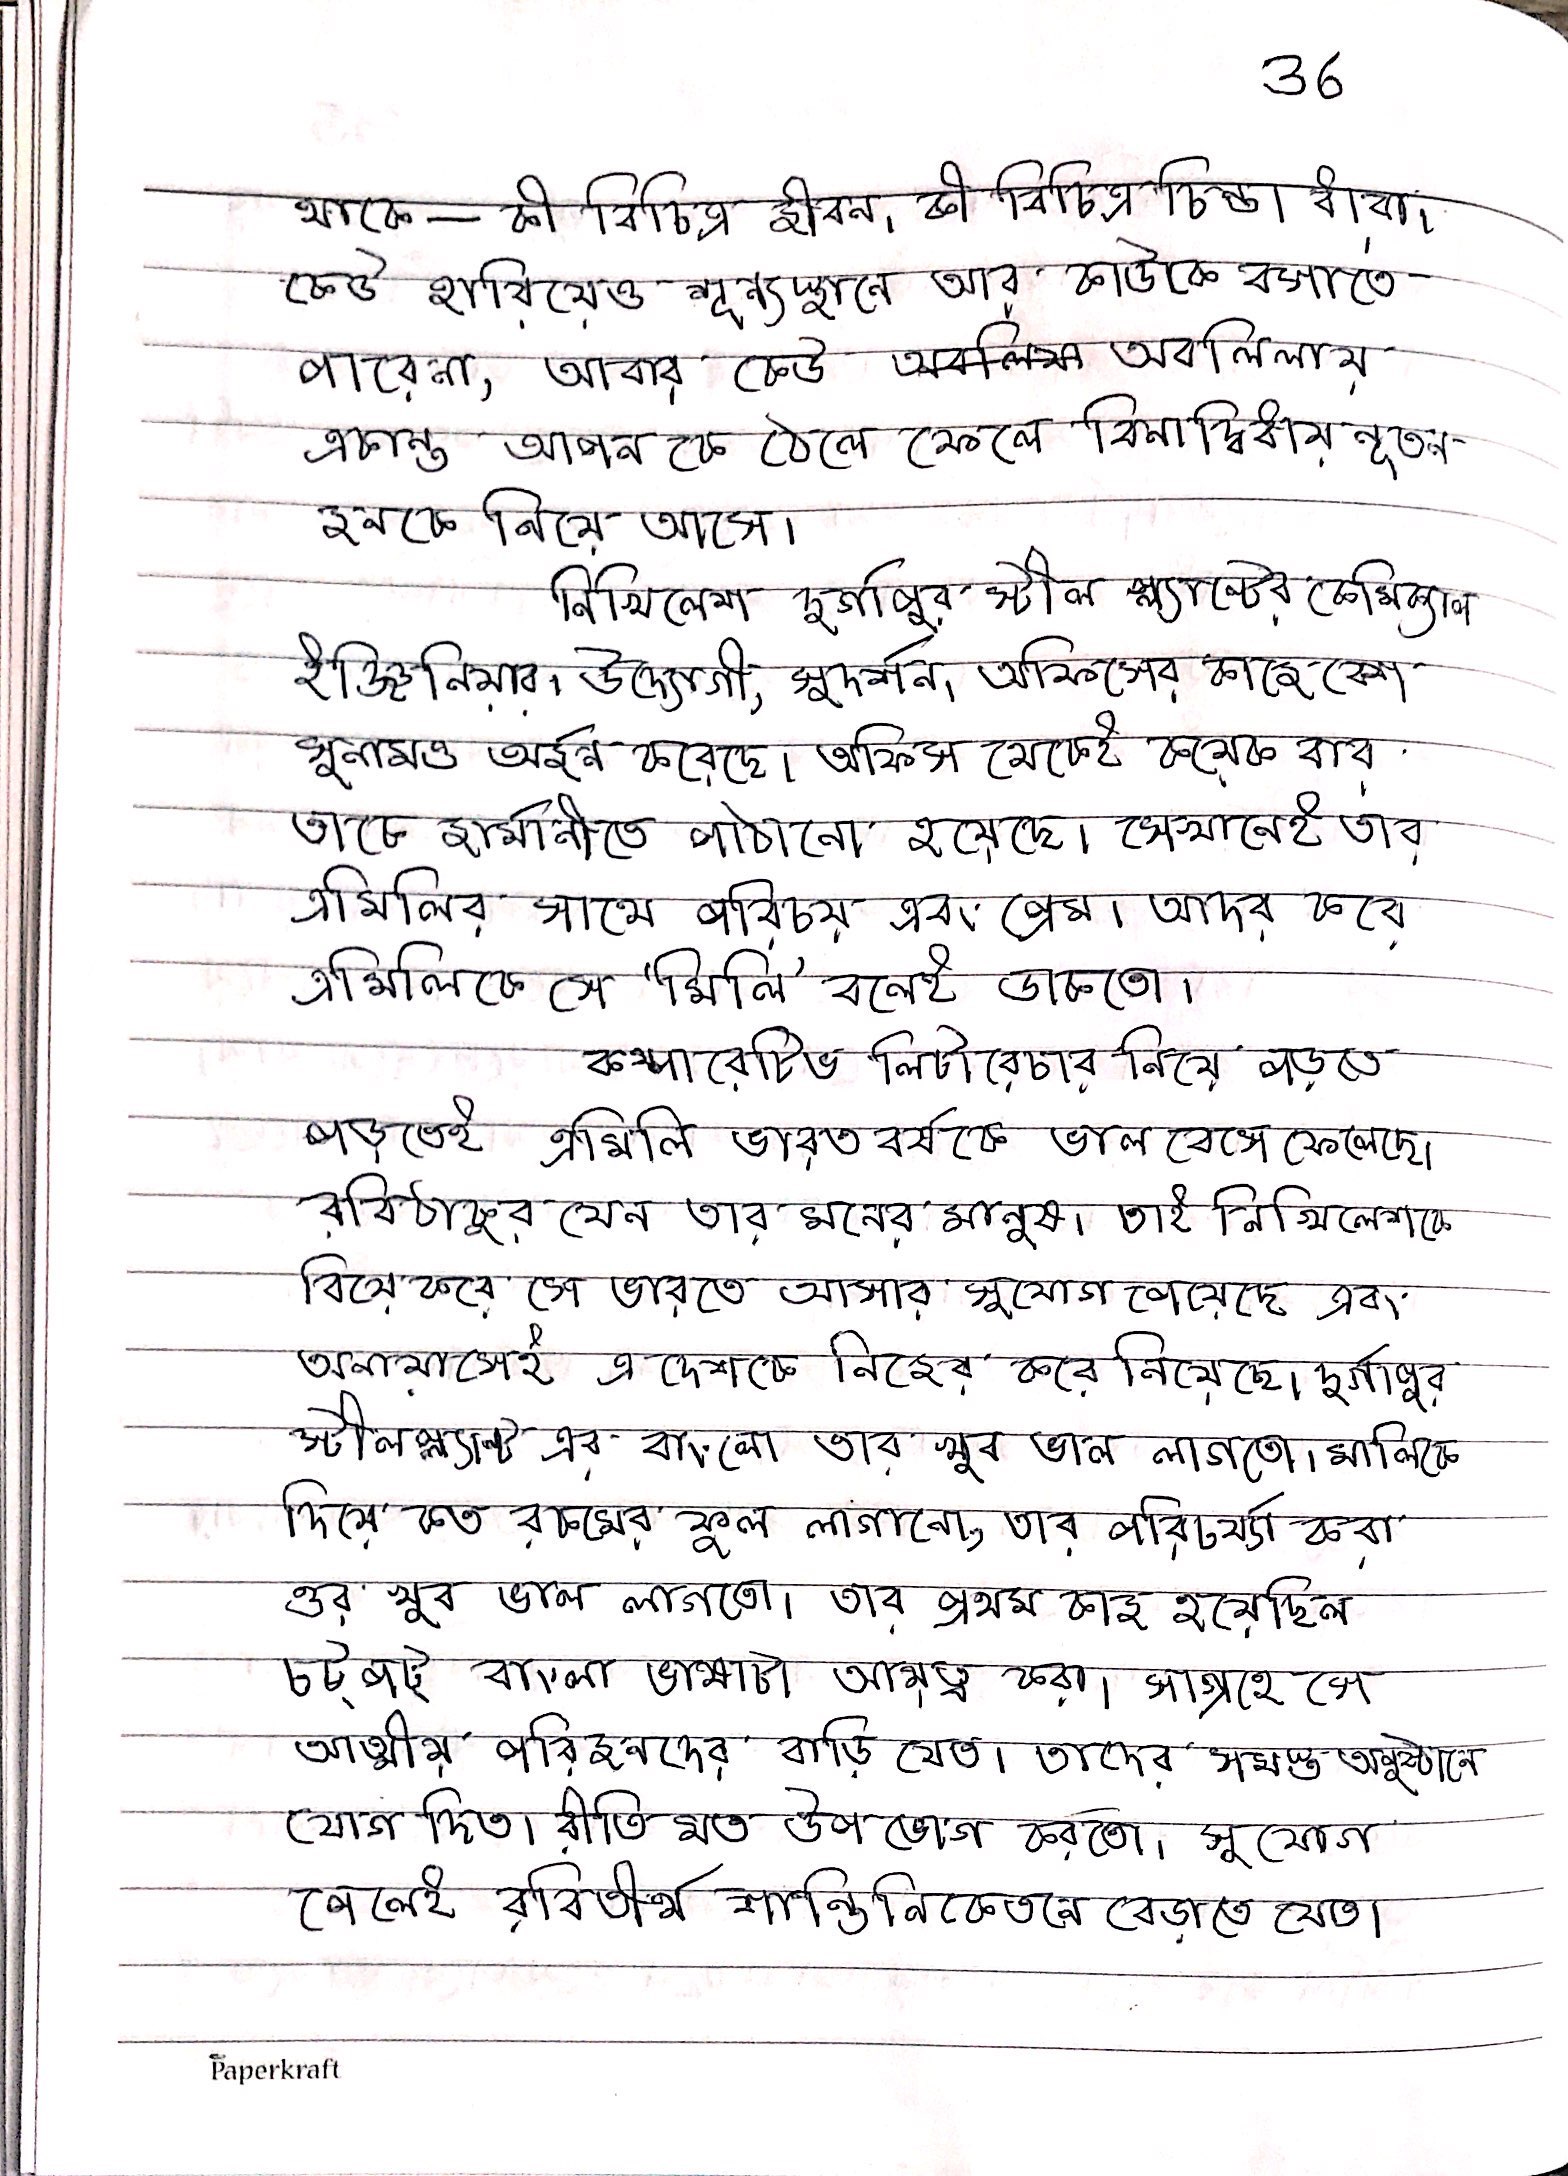 36
থাকে — কী বিচিত্র জীবন, কী বিচিত্র চিন্তা ধারা,
কেউ হারিয়েও শূন্যস্থানে আর কাউকে বসাতে
পারেনা, আবার কেউ অবলিলায়
একান্ত আপনকে ঠেলে ফেলে বিনাদ্বিধায় নূতন
জনকে নিয়ে আসে।
নিখিলেশ দুর্গাপুর স্টীল প্ল্যান্টের কেমিক্যাল
ইঞ্জিনিয়ার। উদ্যোগী, সুদর্শন, অফিসের কাছে বেশ
সুনামও অর্জন করেছে। অফিস থেকেই কয়েক বার
তাকে জার্মানীতে পাঠানো হয়েছে। সেখানেই তার
এমিলির সাথে পরিচয় এবং প্রেম। আদর করে
এমিলিকে সে 'মিলি' বলেই ডাকতো।
কম্পারেটিভ লিটারেচার নিয়ে পড়তে
পড়তেই এমিলি ভারতবর্ষকে ভাল বেসে ফেলেছে।
রবিঠাকুর যেন তার মনের মানুষ। তাই নিখিলেশকে
বিয়ে করে সে ভারতে আসার সুযোগ পেয়েছে এবং
অনায়াসেই এ দেশকে নিজের করে নিয়েছে। দুর্গাপুর
স্টীলপ্ল্যান্ট এর বাংলো তার খুব ভাল লাগতো। মালিকে
দিয়ে কত রকমের ফুল লাগানো, তার পরিচর্য্যা করা
ওর খুব ভাল লাগতো। তার প্রথম কাজ হয়েছিল
চট্‌পট্ বাংলা ভাষাটা আয়ত্ব করা। সাগ্রহে সে
আত্মীয় পরিজনদের বাড়ি যেত। তাদের সমস্ত অনুষ্ঠানে
যোগ দিত। রীতি মত উপভোগ করতো। সুযোগ
পেলেই রবিতীর্থ শান্তিনিকেতনে বেড়াতে যেত।
Paperkraft